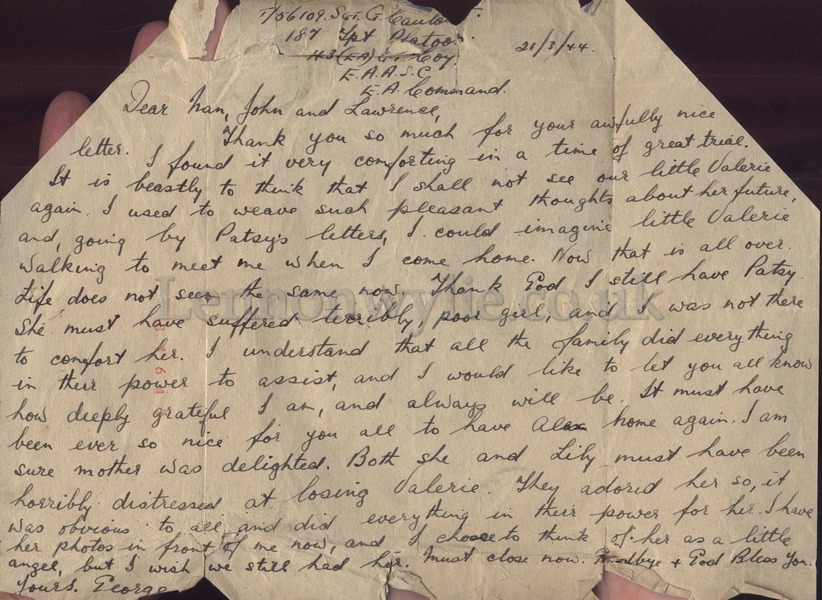 T/56109. Sgt. G.
187 Tpt Platoon
21/3/44.
E.A.A.S.C
E.A. Command.
Dear Nan, John and Lawrence,
Thank you so much for your awfully nice
letter. I found it very comforting in a time of great trial.
It is beastly to think that I shall not see our little Valerie
again. I used to weave such pleasant thoughts about her future,
and, going by Patsy's letters, I could imagine little Valerie
walking to meet me when I come home. Now that is all over.
Life does not seem the same now. Thank God I still have Patsy.
She must have suffered terribly, poor girl, and I was not there
to comfort her. I understand that all the family did everything
in their power to assist, and I would like to let you all know
how deeply grateful I am, and always will be. It must have
been ever so nice for you all to have Alex home again. I am
sure mother was delighted. Both she and Lily must have been
horribly distressed at losing Valerie. They adored her so, it
was obvious to all, and did everything in their power for her. I have
her photos in front of me now, and I choose to think of her as a little
angel, but I wish we still had her. Must close now. Goodbye + God Bless You.
Yours. George
Lennonwylie.co.uk